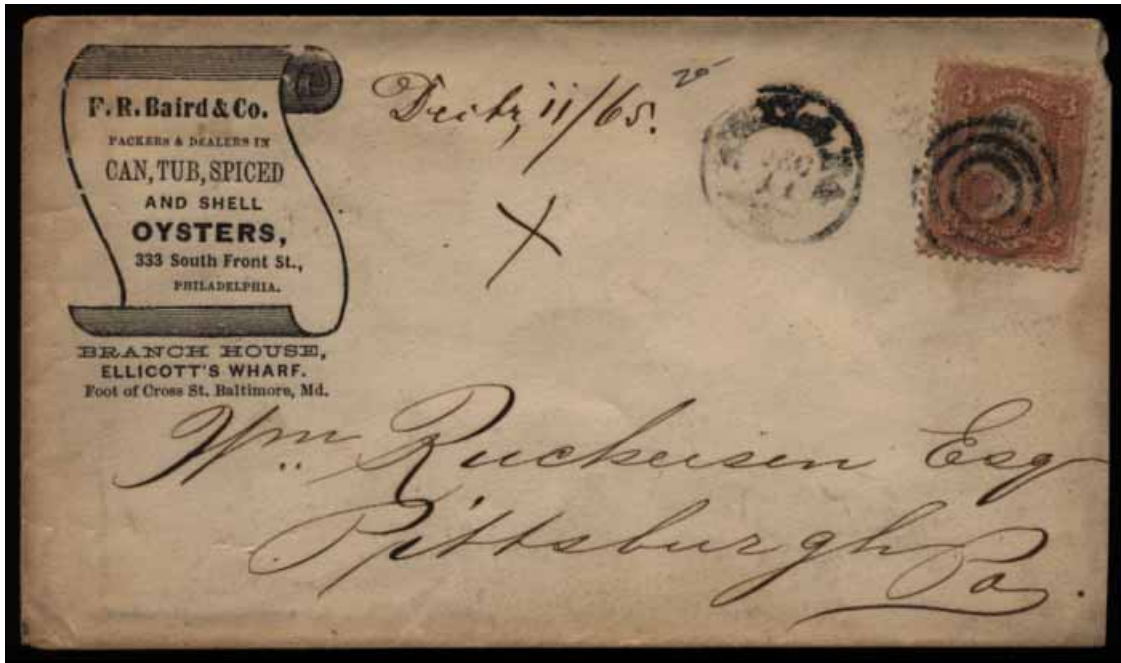 F. R. Baird & Co.
PACKERS & DEALERS IN
CAN, TUB, SPICED
AND SHELL
OYSTERS,
333 South Front St.,
PHILADELPHIA.
BRANCH HOUSE,
ELLICOTT'S WHARF.
Foot of Cross St. Baltimore, Md.
11/65.
X
DEC
11
3 3
Wm Ruckeisen Esq
Pittsburgh
Pa.